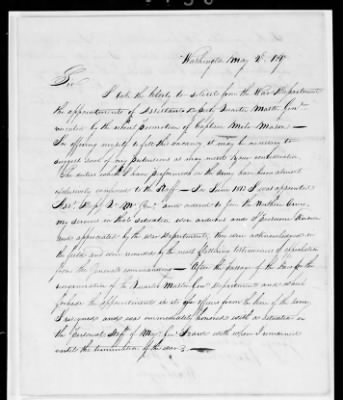 Washington May 2d. 1817
Sir
I take the liberty to solicit from the War Department
the appointment of Assistant Dep'y Quarter Master Gen'l
vacated by the recent promotion of Captain Milo Mason —
In offering myself to fill this vacancy it may be necessary to
suggest such of my pretensions as may merit your consideration
The duties which I have performed in the Army have been almost
exclusively confined to the Staff — In June 1813 I was appointed
Ass't. Dep'y Q. M. Gen'l. and ordered to join the Northern Army,
my services in that station were arduous and I presume known
and appreciated by the war Department, they were acknowledged in
the field and were rewarded by the most flattering testimonies of approbation
from the Generals commanding — After the passage of the Law for the
reorganization of the Quarter Master Gen'l Department and which
forbade the appointment in it of officers from the line of the Army,
I resigned and was immediately honored with a situation in
the Personal Staff of Maj. Gen'l with whom I remained
until the termination of the war —